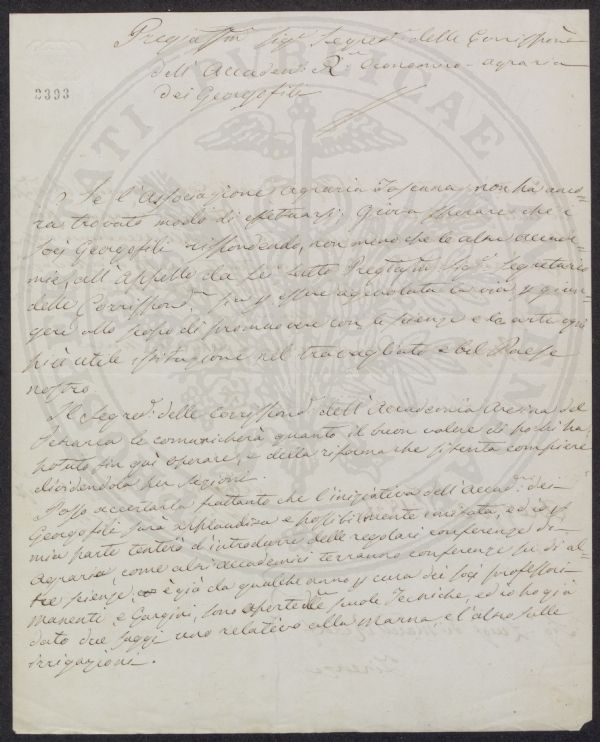 Pregiatssm Sigr Segrets delle Corrispone
dell' Accadem. R.le Economico-agraria
dei Georgofili
2393
Se l'Associazione agraria Toscana, non ha anco-
ra trovato modo di effettuarsi, giova sperare che i
Soci Georgofili rispondendo, non meno che le altre Accade-
mie, all'Appello da Lei fatto Pregiatssm Sigr. Segretario
delle Corrispond. sia per essere agevolata la via per giun-
gere allo scopo di promuovere con le scienze e le arti ogni
più utile istituzione nel travagliato e bel Paese
nostro
Il Segreto. delle Corrispond. dell' Accademia Aretina del
Petrarca le comunicherà quanto il buon volere di pochi ha
potuto fin quì operare, e della riforma che si tenta compiere
dividendola per sezioni.
Posso accertarla frattanto che l'iniziativa dell' Accad. dei
Georgofili sarà applaudita e possibilmente imitata, ed io per
mia parte tenterò d'introdurre delle regolari conferenze di
Agraria, come altri accademici terranno conferenze su di al-
tre scienze, e già da qualche anno per cura dei Soci professori
Manenti e Gargini, sono aperte le scuole Tecniche, ed io ho già
dato due saggi uno relativo alla marna e l'altro sulle
irrigazioni.